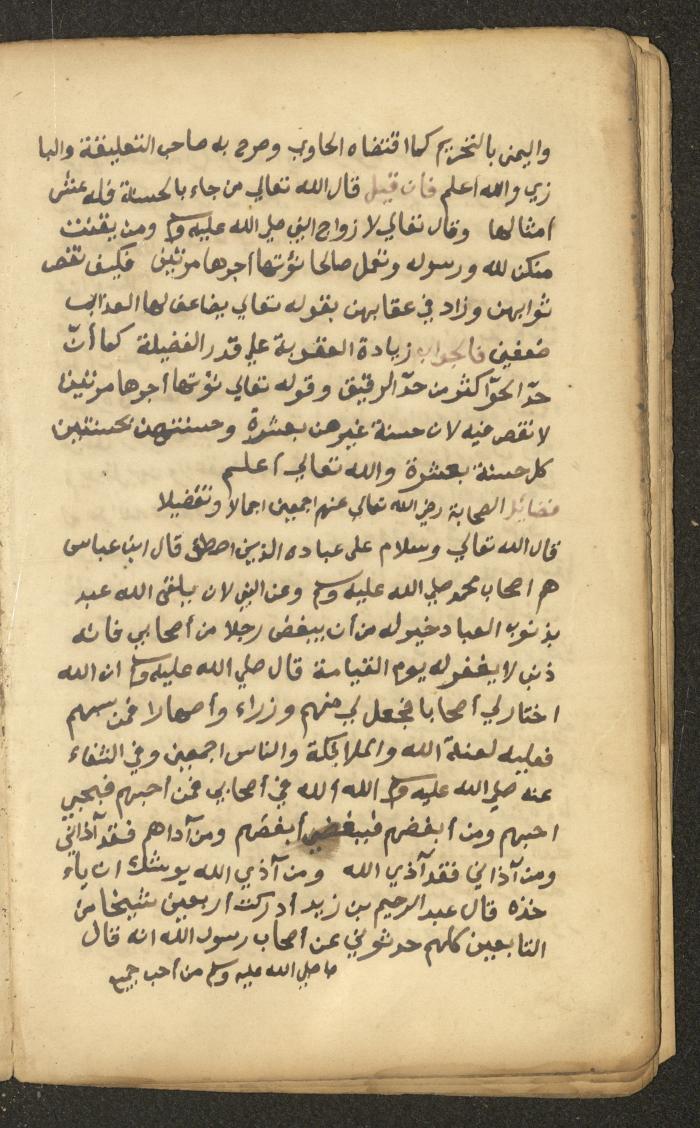 واليمن بالتخريم كما اقتضاه الحاوي وصرح به صاحب التعليقة والبا
زري والله أعلم فان قيل قال الله تعالي من جاء بالحسنة فله عشر
أمثالها وقال تعالي لازواج النبي صلي الله عليه وسلم ومن يقنت
منكن لله ورسوله وتعمل صالحا نؤتها أجرها مرتين فكيف نقص
ثوابهن وزاد في عقابهن بقوله تعالي يضاعف لها العذاب
ضعفين فالجواب زيادة العقوبة علي قدر الفضيلة كما أنّ
حدّ الحرّ اكثر من حدّ الرقيق وقوله تعالي نؤتها أجرها مرتين
لا نقص فيه لان حسنة غيرهن بعشرة وحسنتهن بحسنتين
كل حسنة بعشرة والله تعالي أعلم
فضائل الصحابة رضي الله تعالي عنهم اجمعين اجمالا وتفضيلا
قال الله تعالي وسلام علي عباده الذين اصطفى قال ابن عباس
هم اصحاب محمد صلي الله عليه وسلم وعن النبي لان يلقى الله عبد
بذنوب العباد خير له من أن يبغض رجلا من أصحابي فانه
ذنب لا يغفر له يوم القيامة قال صلي الله عليه وسلم ان الله
اختار لي أصحابا فجعل لي منهم وزراء وأصهارا فمن سبهم
فعليه لعنة الله والملائكة والناس اجمعين وفي الشفاء
عنه صلي الله عليه وسلم الله الله في أصحابي فمن احبهم فبحبي
احبهم ومن أبغضهم فببغضي أبغضهم ومن آذاهم فقد آذاني
ومن آذاني فقد آذي الله ومن آذي الله يوشك ان يأ
خذه قال عبد الرحيم بن زيد أدركت أربعين شيخا من
التابعين كلهم حدثوني عن أصحاب رسول الله انه قال
صلي الله عليه وسلم من أحب جميع